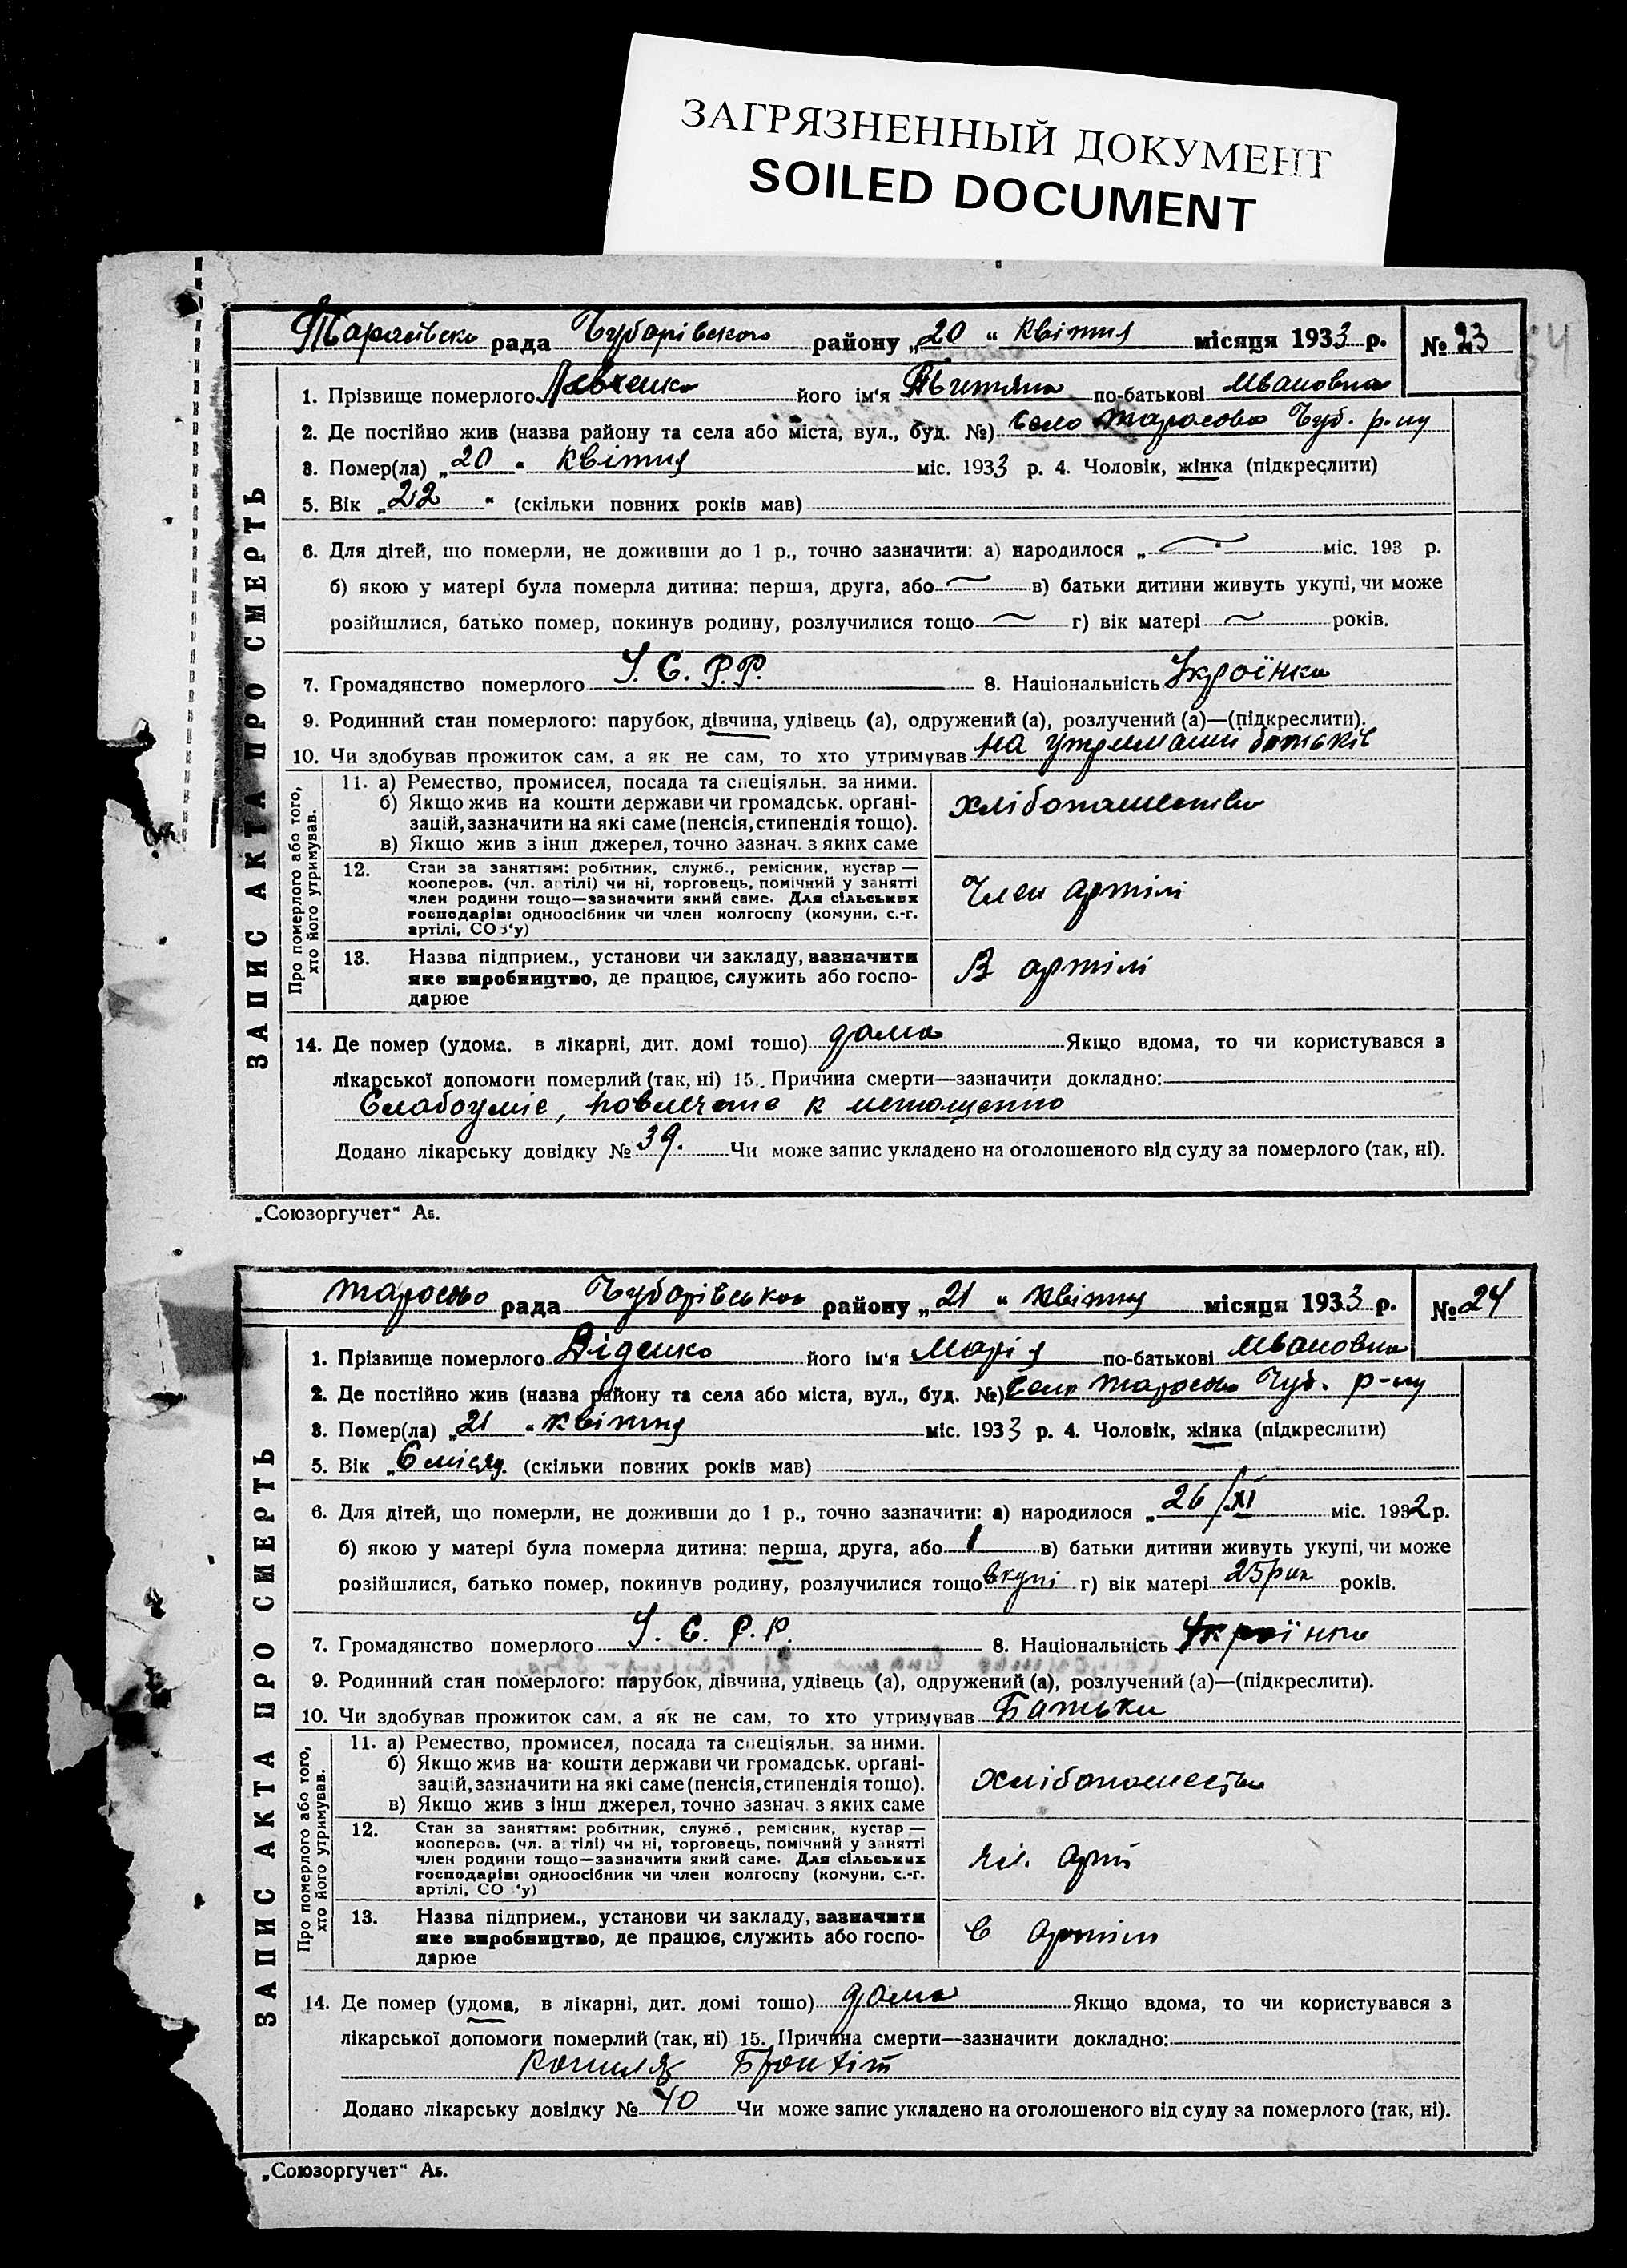 ЗАГРЯЗНЕННЫЙ ДОКУМЕНТ
SOILED DOCUMENT
рада Чубарівського району „20“ Квітня місяця 1933 р. № 23
ЗАПИС АКТА ПРО СМЕРТЬ
1. Прізвище померлого Левченко його ім'я Тытяна по-батькові Ивановна
2. Де постійно жив (назва району та села або міста, вул., буд. №) Село Тарасовка Чуб. р-ну
3. Помер(ла) „20“ Квітня міс. 1933 р. 4. Чоловік, жінка (підкреслити)
5. Вік „22“ (скільки повних років мав)
6. Для дітей, що померли, не доживши до 1 р., точно зазначити: а) народилося „ “ міс. 193 р.
б) якою у матері була померла дитина: перша, друга, або в) батьки дитини живуть укупі, чи може
розійшлися, батько помер, покинув родину, розлучилися тощо г) вік матері років.
7. Громадянство померлого У. С. Р. Р. 8. Національність Українка
9. Родинний стан померлого: парубок, дівчина, удівець (а), одружений (а), розлучений (а)—(підкреслити).
10. Чи здобував прожиток сам, а як не сам, то хто утримував на утриманні батьків
Про померлого або того, хто його утримував.
11. а) Ремество, промисел, посада та спеціяльн. за ними.
б) Якщо жив на кошти держави чи громадськ. орґані-
зацій, зазначити на які саме (пенсія, стипендія тощо).
в) Якщо жив з інш джерел, точно зазнач. з яких саме
хлібопашество
12. Стан за заняттям: робітник, служб., ремісник, кустар —
кооперов. (чл. артілі) чи ні, торговець, помічний у занятті
член родини тощо—зазначити який саме. Для сільських
господарів: одноосібник чи член колгоспу (комуни, с.-г.
артілі, СОЗ'у)
Член артілі
13. Назва підприєм., установи чи закладу, зазначити
яке виробництво, де працює, служить або госпо-
дарює
В артілі
14. Де помер (удома, в лікарні, дит. домі тощо) дома Якщо вдома, то чи користувався з
лікарської допомоги померлий (так, ні) 15. Причина смерти—зазначити докладно:
Слабоуміе, к истощению
Додано лікарську довідку № 39. Чи може запис укладено на оголошеного від суду за померлого (так, ні).
„Союзоргучет“ Аб.
рада Чубарівського району „21“ Квітня місяця 1933 р. № 24
ЗАПИС АКТА ПРО СМЕРТЬ
1. Прізвище померлого Діденко його ім'я Марія по-батькові Ивановна
2. Де постійно жив (назва району та села або міста, вул., буд. №) Село Чуб. р-ну
3. Помер(ла) „21“ Квітня міс. 1933 р. 4. Чоловік, жінка (підкреслити)
5. Вік „6 місяц. (скільки повних років мав)
6. Для дітей, що померли, не доживши до 1 р., точно зазначити: а) народилося „26/XI міс. 1932 р.
б) якою у матері була померла дитина: перша, друга, або 1 в) батьки дитини живуть укупі, чи може
розійшлися, батько помер, покинув родину, розлучилися тощо вкупі г) вік матері 25 рик років.
7. Громадянство померлого У. С. Р. Р. 8. Національність Українка
9. Родинний стан померлого: парубок, дівчина, удівець (а), одружений (а), розлучений (а)—(підкреслити).
10. Чи здобував прожиток сам, а як не сам, то хто утримував Батьки
Про померлого або того, хто його утримував.
11. а) Ремество, промисел, посада та спеціяльн. за ними.
б) Якщо жив на кошти держави чи громадськ. орґані-
зацій, зазначити на які саме (пенсія, стипендія тощо).
в) Якщо жив з інш джерел, точно зазнач. з яких саме
хлібопашество
12. Стан за заняттям: робітник, служб., ремісник, кустар —
кооперов. (чл. артілі) чи ні, торговець, помічний у занятті
член родини тощо—зазначити який саме. Для сільських
господарів: одноосібник чи член колгоспу (комуни, с.-г.
артілі, СОЗ'у)
13. Назва підприєм., установи чи закладу, зазначити
яке виробництво, де працює, служить або госпо-
дарює
С артілі
14. Де помер (удома, в лікарні, дит. домі тощо) дома Якщо вдома, то чи користувався з
лікарської допомоги померлий (так, ні) 15. Причина смерти—зазначити докладно:
Бронхіт
Додано лікарську довідку № 40 Чи може запис укладено на оголошеного від суду за померлого (так, ні).
„Союзоргучет“ Аб.